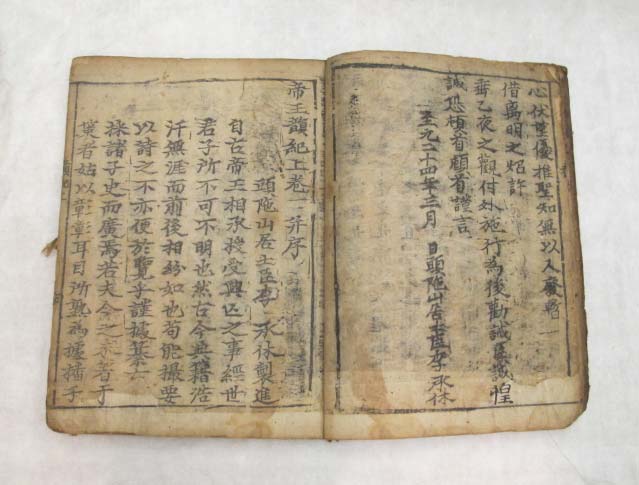 心伏望優推聖知無以人廢
借离明之炤許
垂乙夜之觀付外施行為後勸誡臣誠惶
誠恐頓首頓首謹言
至元二十四年三月 日頭陁山居士臣李承休
帝王韻紀上卷一并序
頭陁山居士臣李 承休製進
自古帝王相承授受興亡之事經世
君子所不可不明也然古今典籍浩
汗無涯而前後相紛如也苟能撮要
以詩之不亦便於覽乎謹據
採諸子史而廣焉若夫今之未著于
策者姑以彰彰耳目所熟為據播于